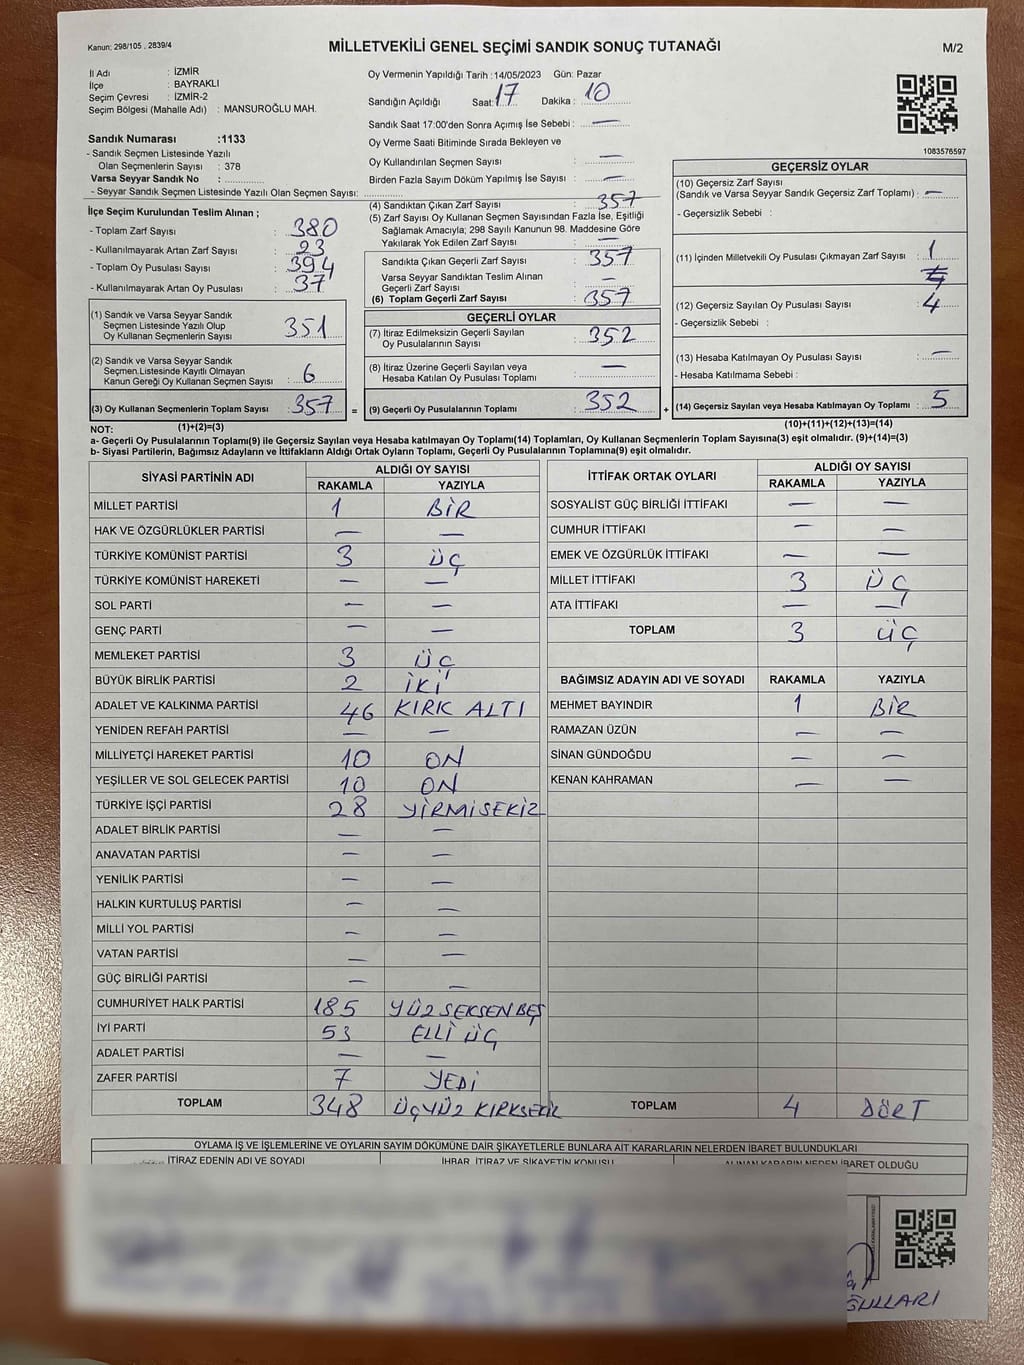 Kanun; 298/105 , 2839/4
MİLLETVEKİLİ GENEL SEÇİMİ SANDIK SONUÇ TUTANAĞI
M/2
İl Adı : İZMİR
İlçe : BAYRAKLI
Seçim Çevresi : İZMİR-2
Seçim Bölgesi (Mahalle Adı) : MANSUROĞLU MAH.
Sandık Numarası :1133
- Sandık Seçmen Listesinde Yazılı
Olan Seçmenlerin Sayısı : 378
Varsa Seyyar Sandık No :
- Seyyar Sandık Seçmen Listesinde Yazılı Olan Seçmen Sayısı:
Oy Vermenin Yapıldığı Tarih :14/05/2023 Gün: Pazar
Sandığın Açıldığı Saat: 17 Dakika : 10
Sandık Saat 17:00'den Sonra Açımış İse Sebebi : —
Oy Verme Saati Bitiminde Sırada Bekleyen ve
Oy Kullandırılan Seçmen Sayısı : —
Birden Fazla Sayım Döküm Yapılmış İse Sayısı : —
1083576597
İlçe Seçim Kurulundan Teslim Alınan ;
- Toplam Zarf Sayısı : 380
- Kullanılmayarak Artan Zarf Sayısı : 23
- Toplam Oy Pusulası Sayısı : 394
- Kullanılmayarak Artan Oy Pusulası : 37
(1) Sandık ve Varsa Seyyar Sandık
Seçmen Listesinde Yazılı Olup
Oy Kullanan Seçmenlerin Sayısı : 351
(2) Sandık ve Varsa Seyyar Sandık
Seçmen.Listesinde Kayıtlı Olmayan
Kanun Gereği Oy Kullanan Seçmen Sayısı : 6
(3) Oy Kullanan Seçmenlerin Toplam Sayısı : 357 =
(4) Sandıktan Çıkan Zarf Sayısı : 357
(5) Zarf Sayısı Oy Kullanan Seçmen Sayısından Fazla İse, Eşitliği
Sağlamak Amacıyla; 298 Sayılı Kanunun 98. Maddesine Göre
Yakılarak Yok Edilen Zarf Sayısı : —
Sandıkta Çıkan Geçerli Zarf Sayısı : 357
Varsa Seyyar Sandıktan Teslim Alınan
Geçerli Zarf Sayısı : —
(6) Toplam Geçerli Zarf Sayısı : 357
GEÇERLİ OYLAR
(7) İtiraz Edilmeksizin Geçerli Sayılan
Oy Pusulalarının Sayısı : 352
(8) İtiraz Üzerine Geçerli Sayılan veya
Hesaba Katılan Oy Pusulası Toplamı : —
(9) Geçerli Oy Pusulalarının Toplamı : 352 +
GEÇERSİZ OYLAR
(10) Geçersiz Zarf Sayısı
(Sandık ve Varsa Seyyar Sandık Geçersiz Zarf Toplamı) : —
- Geçersizlik Sebebi :
(11) İçinden Milletvekili Oy Pusulası Çıkmayan Zarf Sayısı : 1
(12) Geçersiz Sayılan Oy Pusulası Sayısı : 4
- Geçersizlik Sebebi :
(13) Hesaba Katılmayan Oy Pusulası Sayısı : —
- Hesaba Katılmama Sebebi :
(14) Geçersiz Sayılan veya Hesaba Katılmayan Oy Toplamı : 5
NOT: (1)+(2)=(3) (10)+(11)+(12)+(13)=(14)
a- Geçerli Oy Pusulalarının Toplamı(9) ile Geçersiz Sayılan veya Hesaba katılmayan Oy Toplamı(14) Toplamları, Oy Kullanan Seçmenlerin Toplam Sayısına(3) eşit olmalıdır. (9)+(14)=(3)
b- Siyasi Partilerin, Bağımsız Adayların ve İttifakların Aldığı Ortak Oyların Toplamı, Geçerli Oy Pusulalarının Toplamına(9) eşit olmalıdır.
SİYASİ PARTİNİN ADI ALDIĞI OY SAYISI
RAKAMLA YAZIYLA
MİLLET PARTİSİ 1 BİR
HAK VE ÖZGÜRLÜKLER PARTİSİ — —
TÜRKİYE KOMÜNİST PARTİSİ 3 ÜÇ
TÜRKİYE KOMÜNİST HAREKETİ — —
SOL PARTİ — —
GENÇ PARTİ — —
MEMLEKET PARTİSİ 3 ÜÇ
BÜYÜK BİRLİK PARTİSİ 2 İKİ
ADALET VE KALKINMA PARTİSİ 46 KIRK ALTI
YENİDEN REFAH PARTİSİ — —
MİLLİYETÇİ HAREKET PARTİSİ 10 ON
YEŞİLLER VE SOL GELECEK PARTİSİ 10 ON
TÜRKİYE İŞÇİ PARTİSİ 28 YİRMİSEKİZ
ADALET BİRLİK PARTİSİ — —
ANAVATAN PARTİSİ — —
YENİLİK PARTİSİ — —
HALKIN KURTULUŞ PARTİSİ — —
MİLLİ YOL PARTİSİ — —
VATAN PARTİSİ — —
GÜÇ BİRLİĞİ PARTİSİ — —
CUMHURİYET HALK PARTİSİ 185 YÜZ SEKSEN BEŞ
İYİ PARTİ 53 ELLİ ÜÇ
ADALET PARTİSİ — —
ZAFER PARTİSİ 7 YEDİ
TOPLAM 348 ÜÇYÜZ KIRKSEKİZ
İTTİFAK ORTAK OYLARI ALDIĞI OY SAYISI
RAKAMLA YAZIYLA
SOSYALİST GÜÇ BİRLİĞİ İTTİFAKI — —
CUMHUR İTTİFAKI — —
EMEK VE ÖZGÜRLÜK İTTİFAKI — —
MİLLET İTTİFAKI 3 ÜÇ
ATA İTTİFAKI — —
TOPLAM 3 ÜÇ
BAĞIMSIZ ADAYIN ADI VE SOYADI RAKAMLA YAZIYLA
MEHMET BAYINDIR 1 BİR
RAMAZAN ÜZÜN — —
SİNAN GÜNDOĞDU — —
KENAN KAHRAMAN — —
TOPLAM 4 DÖRT
OYLAMA İŞ VE İŞLEMLERİNE VE OYLARIN SAYIM DÖKÜMÜNE DAİR ŞİKAYETLERLE BUNLARA AİT KARARLARIN NELERDEN İBARET BULUNDUKLARI
İTİRAZ EDENİN ADI VE SOYADI İHBAR, İTİRAZ VE ŞİKAYETİN KONUSU ALINAN KARARIN NEDEN İBARET OLDUĞU